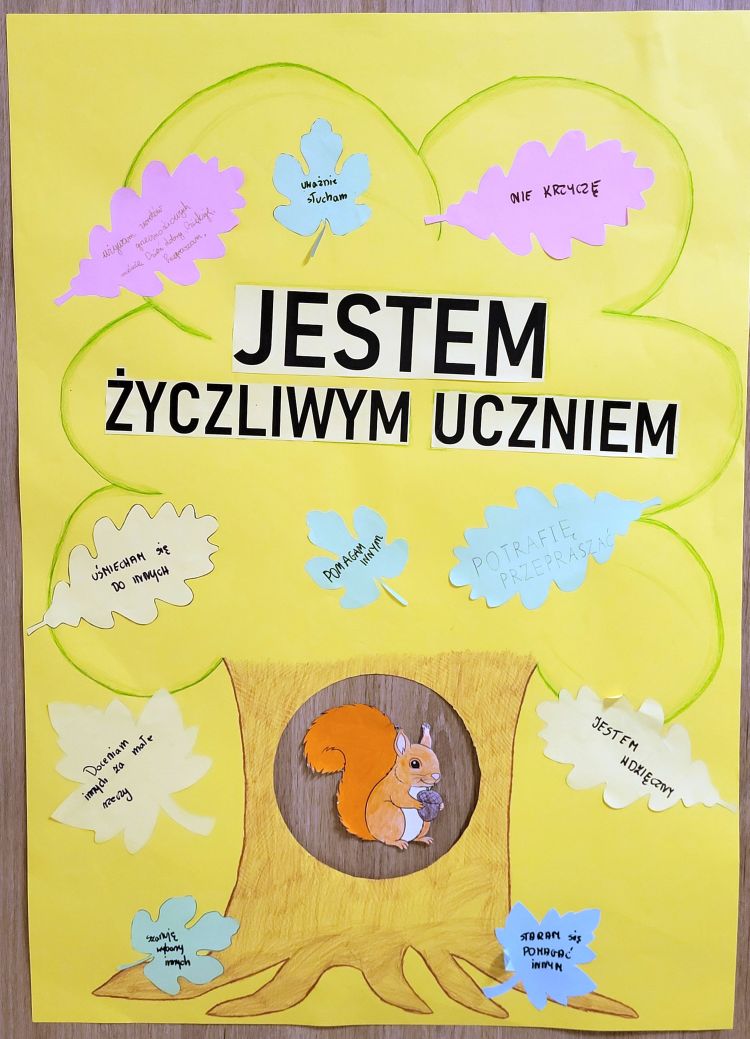 używam zwrotów
grzecznościowych
mówię Dzień dobry, Dziękuję,
Przepraszam.
uważnie
słucham
NIE KRZYCZĘ
JESTEM
ŻYCZLIWYM UCZNIEM
UŚMIECHAM się
DO INNYCH
POMAGAM
INNYM
POTRAFIĘ
PRZEPRASZAĆ
Doceniam
innych za małe
rzeczy
JESTEM
WDZIĘCZNY
szanuję
wybory
innych
STARAM się
POMAGAĆ
INNYM